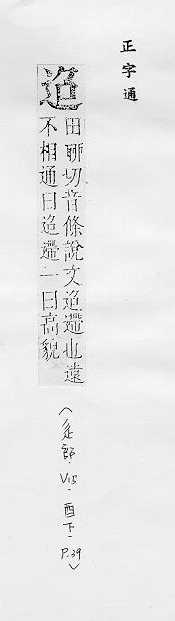 正字通
迢
田聊切音條說文迢遰也遠
不相通曰迢遰一曰高貌
〈辵部.V15.酉下.P.39〉